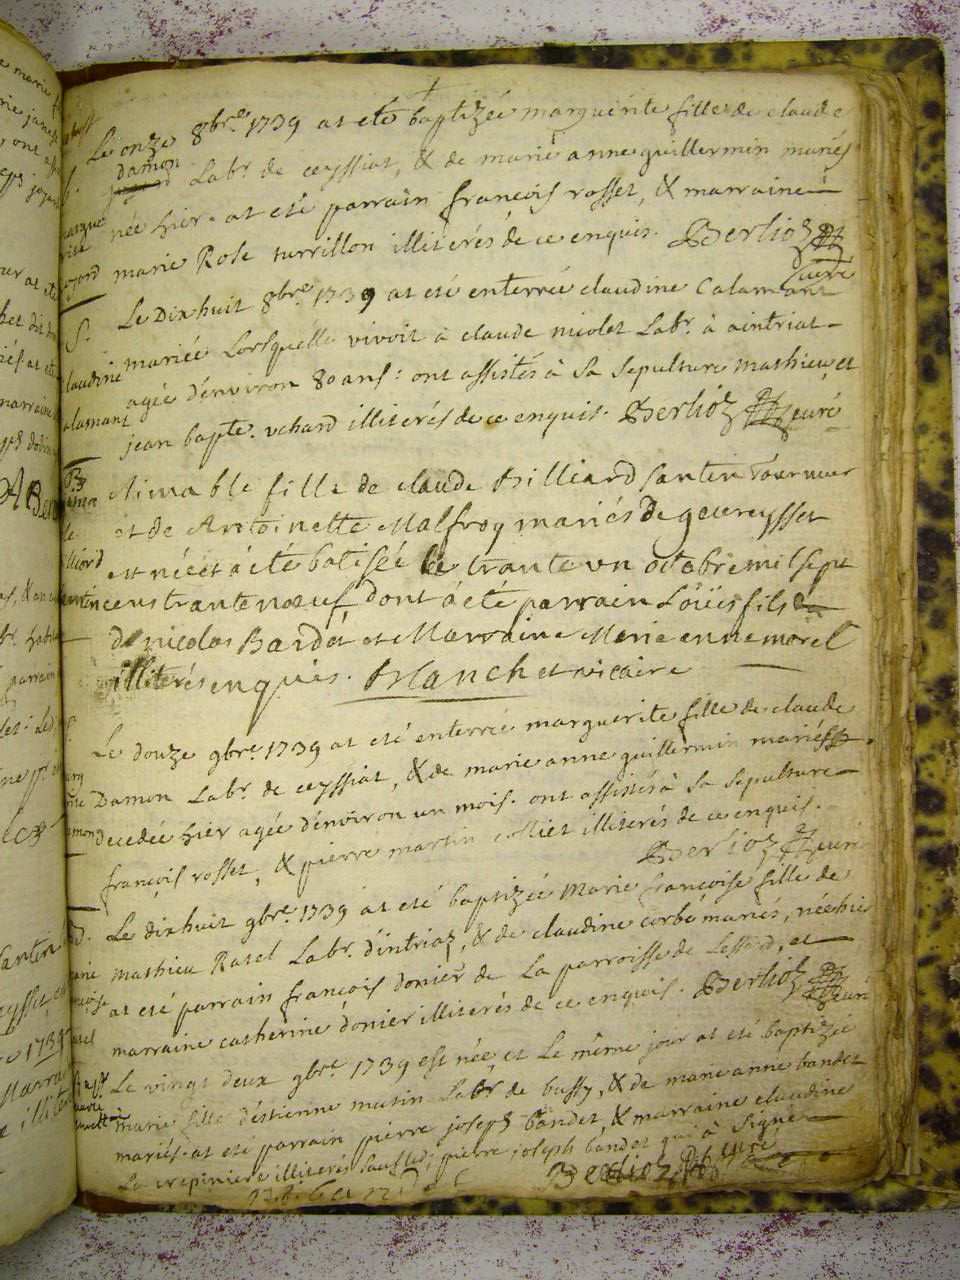 Le onze 8bre 1739 at eté baptizée marguerite fille de claude
damon
Labr. de ceyssiat, & de marie anne guillermin mariés
née hier. at eté parrain françois rosset, & marraine
marie Rose turrillon illiterés de ce enquis. Berlioz
curé
Le Dixhuit 8bre 1739 at eté enterrée claudine Calamant
mariée Lorsquelle vivoit à claude nicolet Labr. à aintriat
agée d'environ 80 ans: ont assistés à Sa Sepulture mathieu, et
jean bapte. uchard illiterés de ce enquis. Berlioz curé
Aimable fille de claude Billiard Santin Tournier
et de Antoinette Malfroy mariés de gevreysset
est née et à été batisée le trante un octobre mil sept
cens trante nœuf dont à été parrain Loüis fils
de nicolas Bardet et Marraine Marie enne morel
illiterés enquis. Blanchet vicaire
Le douze 9bre 1739 at eté enterrée marguerite fille de claude
Damon Labr. de ceyssiat, & de marie anne guillermin mariés
decedée hier agée d'environ un mois. ont assistés à Sa Sepulture
françois rosset, & pierre martin colliet illiterés de ce enquis.
Berlioz curé
Le dixhuit 9bre 1739 at eté baptizée Marie françoise fille de
mathieu Ratel Labr. d'intriaz, & de claudine corbé mariés, née hier
at eté parrain françois donier de La parroisse de Lessard, et
marraine catherine donier illiterés de ce enquis. Berlioz curé
Le vingt deux 9bre 1739 est née, et Le même jour at eté baptizée
marie fille d'estienne mutin Labr de bussy, & de marie anne bandet
mariés. at eté parrain pierre joseph bandet, & marraine claudine
La crepiniere illiterés Sauf led. pierre joseph bandet qui à Signé
Berlioz curé